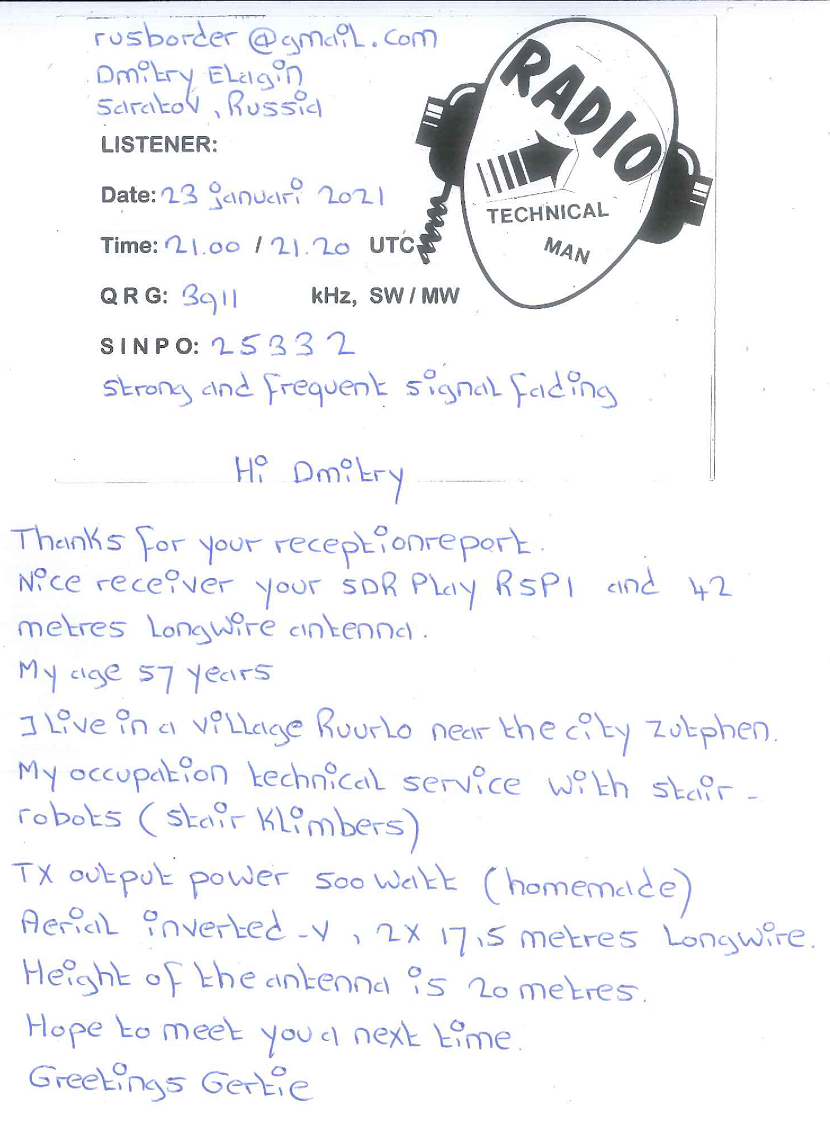 rusborder@gmail.com
Dmitry Elagin
Saratov, Russia
LISTENER:
Date: 23 januari 2021
Time: 21.00 / 21.20 UTC
QRG: 3911 kHz, SW / MW
SINPO: 25332
strong and frequent signal fading
RADIO
TECHNICAL
MAN
Hi Dmitry
Thanks for your receptionreport.
Nice receiver your SDR Play RSP1 and 42
metres Longwire antenna.
My age 57 years
I Live in a village Ruurlo near the city Zutphen.
My occupation technical service with stair -
robots (stair Klimbers)
TX output power 500 Watt (homemade)
Aerial inverted -V, 2X 17,5 metres Longwire.
Height of the antenna is 20 metres.
Hope to meet you a next time.
Greetings Gertie